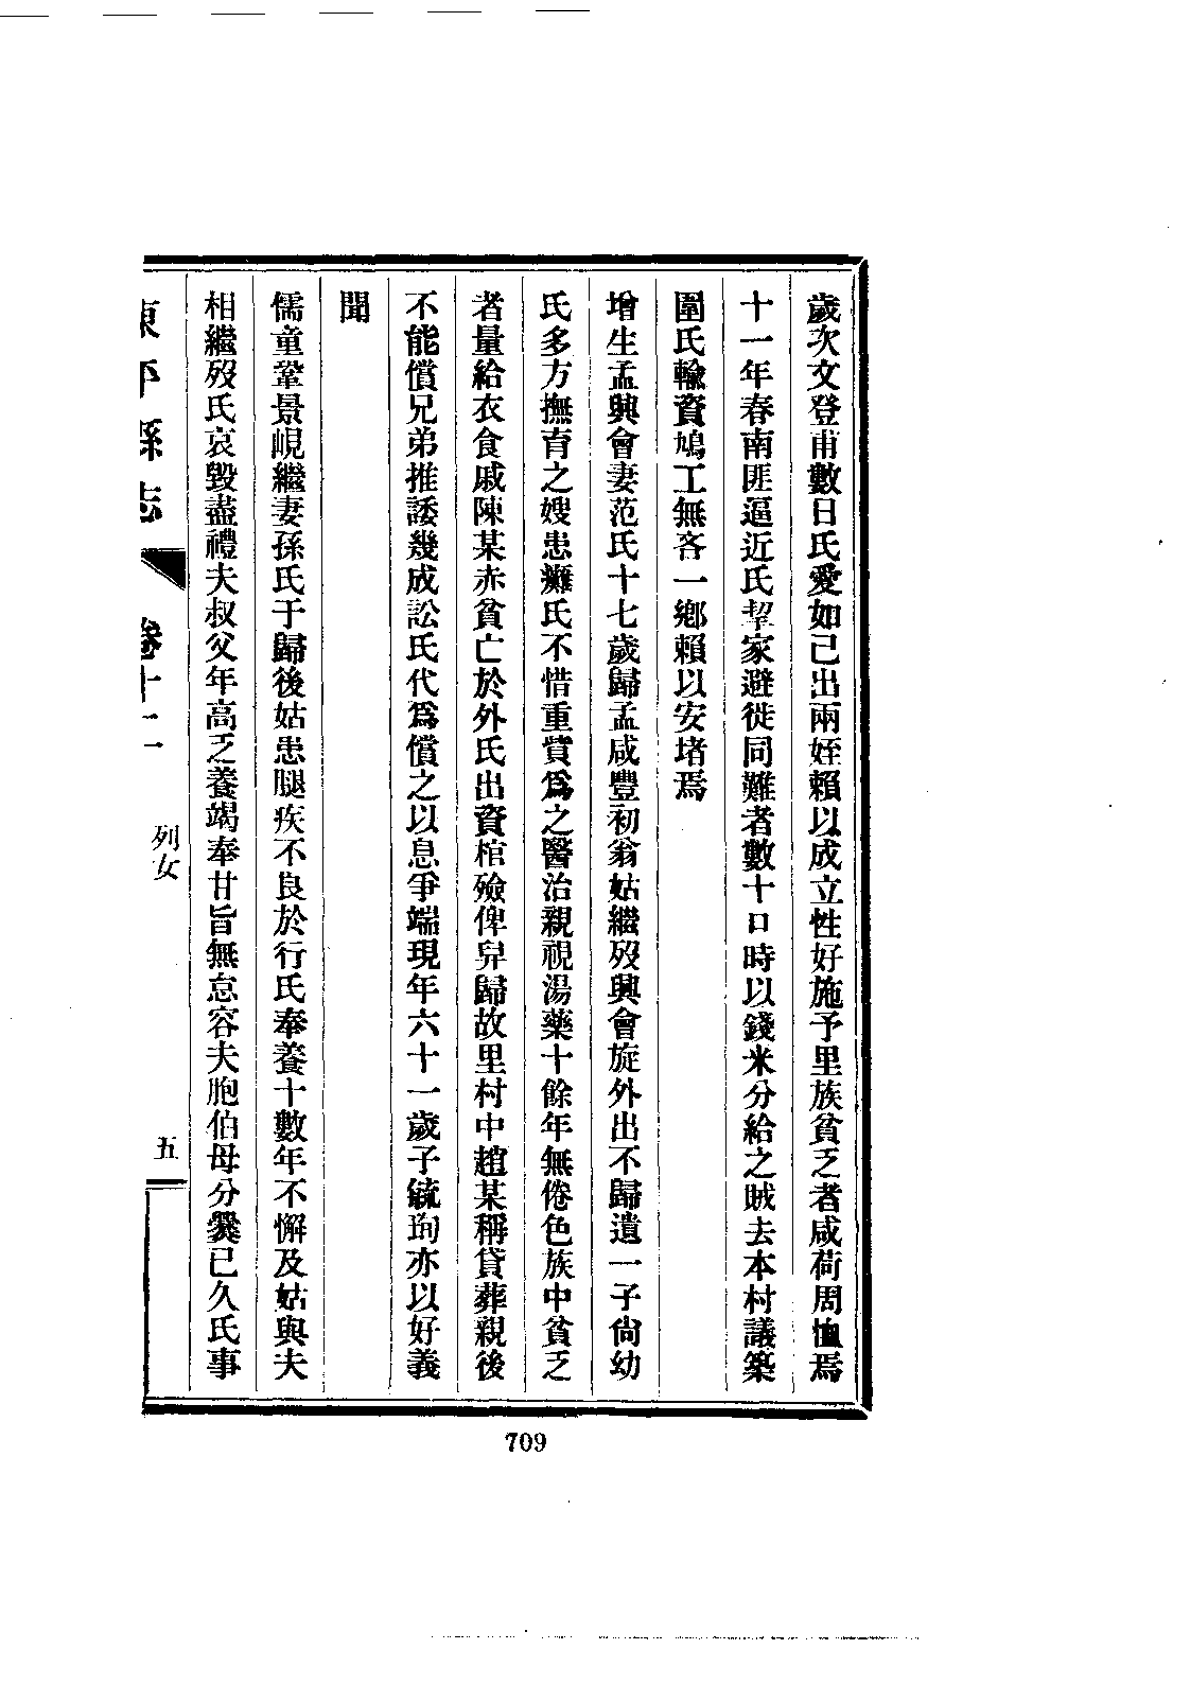 歲次文登甫數日氏愛如己出兩姪賴以成立性好施予里族貧乏者咸荷周恤焉
十一年春南匪逼近氏挈家避徙同難者數十口時以錢米分給之賊去本村議築
圍氏輸資鳩工無吝一鄉賴以安堵焉
增生孟興會妻范氏十七歲歸孟咸豐初翁姑繼歿興會旋外出不歸遺一子尙幼
氏多方撫育之嫂患癱氏不惜重貲爲之醫治親視湯藥十餘年無倦色族中貧乏
者量給衣食戚陳某赤貧亡於外氏出資棺殮俾舁歸故里村中趙某稱貸葬親後
不能償兄弟推諉幾成訟氏代爲償之以息爭端現年六十一歲子毓珣亦以好義
聞
儒童鞏景峴繼妻孫氏于歸後姑患腿疾不良於行氏奉養十數年不懈及姑與夫
相繼歿氏哀毀盡禮夫叔父年高乏養竭奉甘旨無怠容夫胞伯母分爨已久氏事
東平縣志 卷十二 列女 五
709